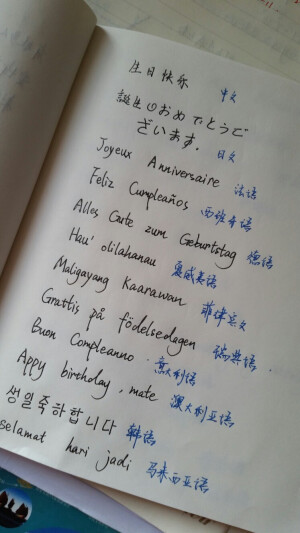 生日快乐 中文
誕生のおめでとうご
ざいます。 日文
Joyeux Anniversaire 法语
Feliz Cumpleaños 西班牙语
Alles Gute zum Geburtstag 德语
Hau' olilahanau 夏威夷语
Maligayang Kaarawan 菲律宾文
Grattis på födelsedagen 瑞典语
Buon Compleanno 意大利语
Appy birthday, mate 澳大利亚语
생일축하합니다 韩语
selamat hari jadi 马来西亚语